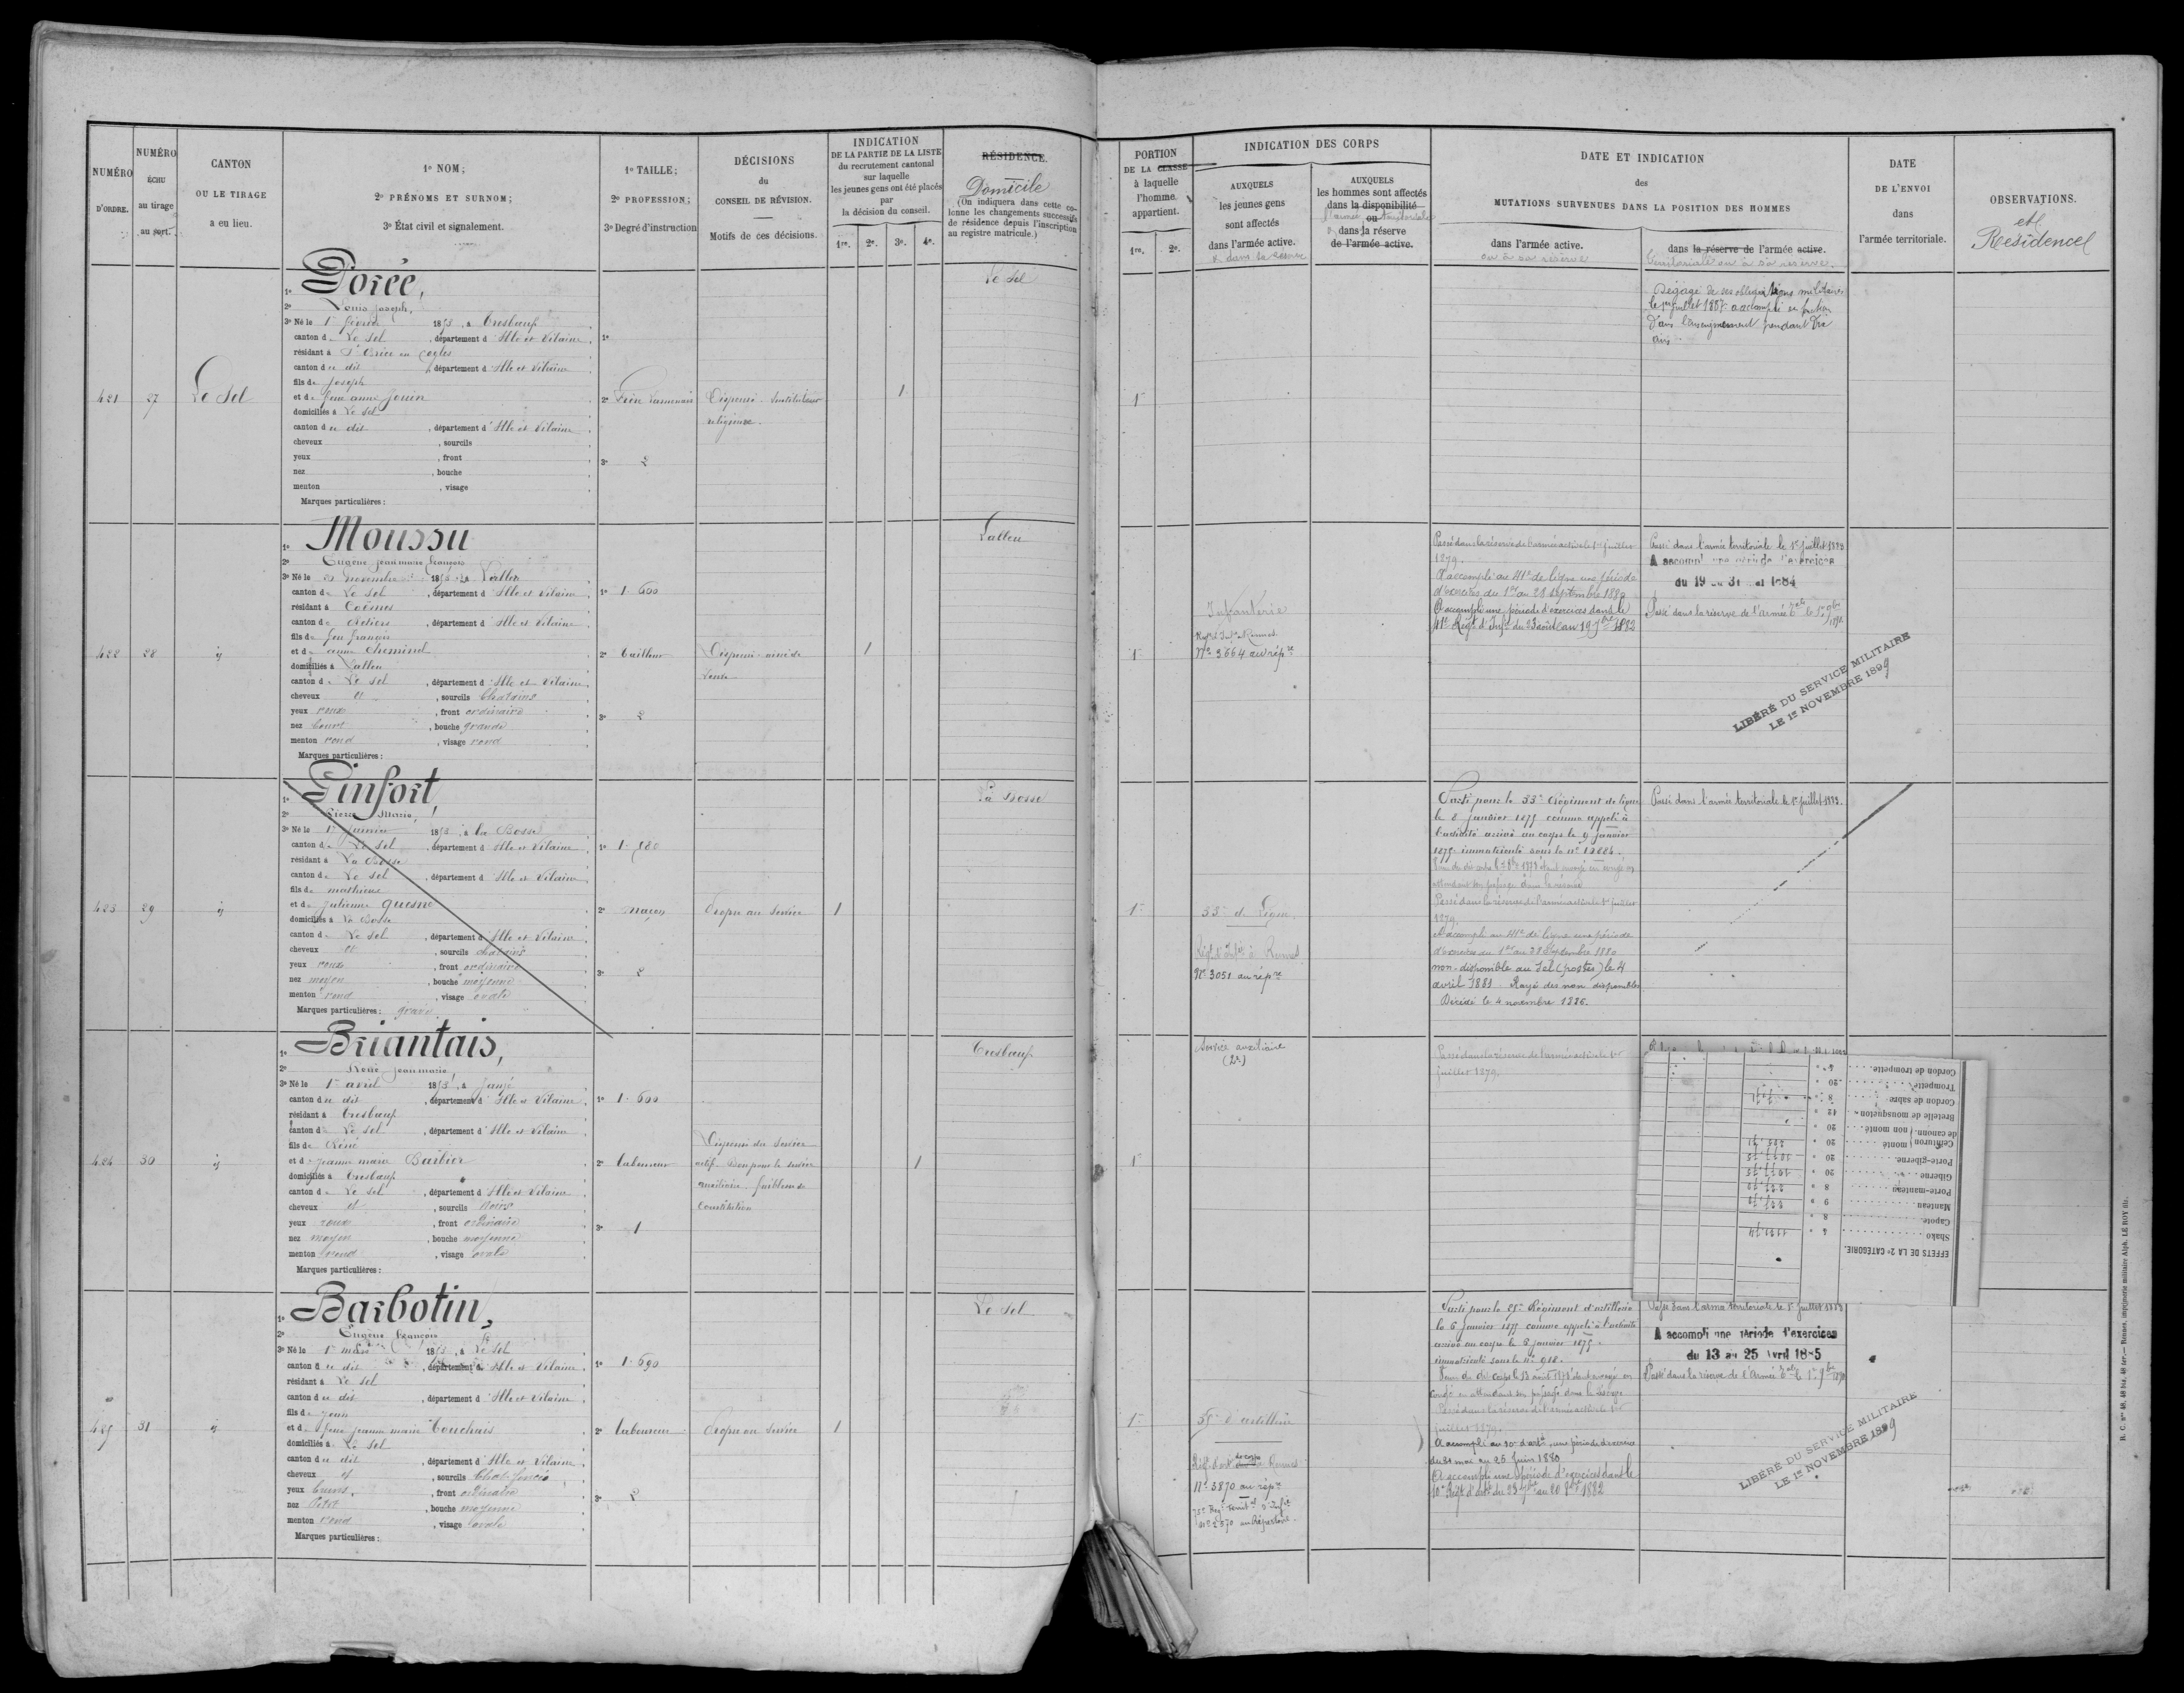 NUMÉRO
D'ORDRE.
NUMÉRO
ÉCHU
au tirage
au sort.
CANTON
OU LE TIRAGE
a eu lieu.
1º NOM;
2º PRÉNOMS ET SURNOM;
3º État civil et signalement.
1º TAILLE;
2º PROFESSION;
3º Degré d'instruction
DÉCISIONS
du
CONSEIL DE RÉVISION.
Motifs de ces décisions.
INDICATION
DE LA PARTIE DE LA LISTE
du recrutement cantonal
sur laquelle
les jeunes gens ont été placés
par
la décision du conseil.
1re. 2e. 3e. 4e.
RÉSIDENCE.
Domicile
(On indiquera dans cette co-
lonne les changements successifs
de résidence depuis l'inscription
au registre matricule.)
PORTION
DE LA CLASSE
à laquelle
l'homme
appartient.
1re. 2e.
INDICATION DES CORPS
AUXQUELS
les jeunes gens
sont affectés
dans l'armée active.
& dans sa réserve
AUXQUELS
les hommes sont affectés
dans la disponibilité
l'armée ou territoriale
& dans la réserve
de l'armée active.
DATE ET INDICATION
des
MUTATIONS SURVENUES DANS LA POSITION DES HOMMES
dans l'armée active.
ou à sa réserve
dans la réserve de l'armée active.
territoriale ou à sa réserve.
DATE
DE L'ENVOI
dans
l'armée territoriale.
OBSERVATIONS.
et
Résidence
421 27 Le Sel
1º Dorée,
2º Louis Joseph,
3º Né le 1er février 1853, à Tresbœuf
canton de Le Sel, département d'Ille et Vilaine,
résidant à St Brice en Cogles
canton du dit, département d'Ille et Vilaine
fils de Joseph
et de feue anne Jouin
domiciliés à Le Sel
canton du dit, département d'Ille et Vilaine,
cheveux , sourcils
yeux , front
nez , bouche
menton , visage
Marques particulières :
1º
2º Frère Lamennais
3º 2
Dispensé. Instituteur
religieux.
1
Le Sel
1re
Dégagé de ses obligations militaires
le 1er juillet 1887 a accompli en fonction
dans l'enseignement pendant dix
ans
422 28 ij
1º Moussu
2º Eugène jean marie françois
3º Né le novembre 1853, à Lalleu
canton de Le Sel, département d'Ille et Vilaine,
résidant à Coësmes
canton de Retiers, département d'Ille et Vilaine,
fils de feu françois
et de anne Cheminel
domiciliés à Lalleu
canton de Le Sel, département d'Ille et Vilaine,
cheveux et, sourcils Chatains
yeux roux, front ordinaire
nez court, bouche grande
menton rond, visage rond
Marques particulières :
1º 1.600
2º tailleur
3º 2
Dispensé. ainé de
veuve
1
Lalleu
1re
Infanterie
Regt d'Infie à Rennes
Nº 3664 au répre
Passé dans la réserve de l'armée active le 1er juillet
1879.
A accompli au 41e de ligne une période
d'exercices du 1er au 28 septembre 1880
A accompli une période d'exercices dans le
41e Régt d'Infie du 23 août au 19 7bre 1882
Passé dans l'armée territoriale le 1er juillet 1883
A accompli une période d'exercices
du 19 au 31 mai 1884
Passé dans la réserve de l'armée Tale le 1er 9bre
LIBÉRÉ DU SERVICE MILITAIRE
LE 1er NOVEMBRE 1899
423 29 ij
1º Pinfort,
2º Pierre Marie,
3º Né le 1er janvier 1853, à La Bosse
canton de Le Sel, département d'Ille et Vilaine
résidant à La Bosse
canton de Le Sel, département d'Ille et Vilaine
fils de mathieu
et de Julienne Quesne
domiciliés à La Bosse
canton de Le Sel, département d'Ille et Vilaine,
cheveux et, sourcils chatains
yeux roux, front ordinaire
nez moyen, bouche moyenne
menton rond, visage ovale
Marques particulières : gravé
1º
2º maçon
3º 2
Propre au service
1
La Bosse
1re
33e de Ligne.
Régt d'Infie à Rennes
Nº 3051 au répre
Parti pour le 33e Régiment de ligne
le 8 janvier 1875 comme appelé à
l'activité arrivé au corps le 9 janvier
1875 immatriculé sous le nº 12884.
attendant son passage dans la réserve
Passé dans la réserve de l'armée active le 1er juillet
1879.
A accompli au 41e de ligne une période
d'exercices du 1er au 28 Septembre 1880
non-disponible au Sel (postes) le 4
avril 1883. Rayé des non disponibles
Décédé le 4 novembre 1886.
Passé dans l'armée territoriale le 1er juillet 1883.
424 30 ij
1º Briantais,
2º René jean marie,
3º Né le 1er avril 1853, à Janzé
canton du dit, département d'Ille et Vilaine
résidant à Tresbœuf
canton de Le Sel, département d'Ille et Vilaine
fils de René
et de jeanne marie Barbier
domiciliés à Tresbœuf
canton de Le Sel, département d'Ille et Vilaine
cheveux et, sourcils Noirs
yeux roux, front ordinaire
nez moyen, bouche moyenne
menton rond, visage ovale
Marques particulières :
1º 1.600
2º laboureur
3º 1
Dispensé du service
actif. Bon pour le service
auxiliaire. faiblesse de
Constitution
1
Tresbœuf
1re
Service auxiliaire
(2e)
Passé dans la réserve de l'armée active le 1er
juillet 1879.
EFFETS DE LA 2e CATÉGORIE.
Shako
Capote
Manteau
Porte-manteau
Giberne
Porte-giberne
Ceinturon de canonn. monté
non monté
Bretelle de mousqueton
Cordon de sabre
Trompette
Cordon de trompette
425 31 ij
1º Barbotin,
2º Eugène françois
3º Né le 1er mars 1853, à Le Sel
canton du dit, département d'Ille et Vilaine,
résidant à Le Sel
canton du dit, département d'Ille et Vilaine
fils de jean
et de feue jeanne marie Touchais
domiciliés à Le Sel
canton du dit, département d'Ille et Vilaine
cheveux et, sourcils Chat. foncés
yeux bruns, front ordinaire
nez Petit, bouche moyenne
menton rond, visage ovale
Marques particulières :
1º 1.690
2º laboureur
3º 2
Propre au service
1
Le Sel
1re
35e d'artillerie
Nº 3870 au répre
Nº 2570 au Répertoire.
Parti pour le 35e Régiment d'artillerie
le 6 janvier 1875 comme appelé à l'activité
arrivé au corps le 8 janvier 1875.
immatriculé sous le nº 918.
congé en attendant son passage dans la réserve
Passé dans la réserve de l'armée active le 1er
juillet 1879.
A accompli au 10e d'artie, une période d'exercices
du 31 mai au 25 Juin 1880
A accompli une période d'exercices dans le
10e Régt d'artie du 23 7bre au 20 8bre 1882
Passé dans l'armée territoriale le 1er juillet 1883
A accompli une période d'exercices
du 13 au 25 avril 1885
Passé dans la réserve de l'Armée Tale le 1er 9bre 1890
LIBÉRÉ DU SERVICE MILITAIRE
LE 1er NOVEMBRE 1899
R. C. nos 48, 48 bis, 48 ter.— Rennes, imprimerie militaire Alph. LE ROY fils.